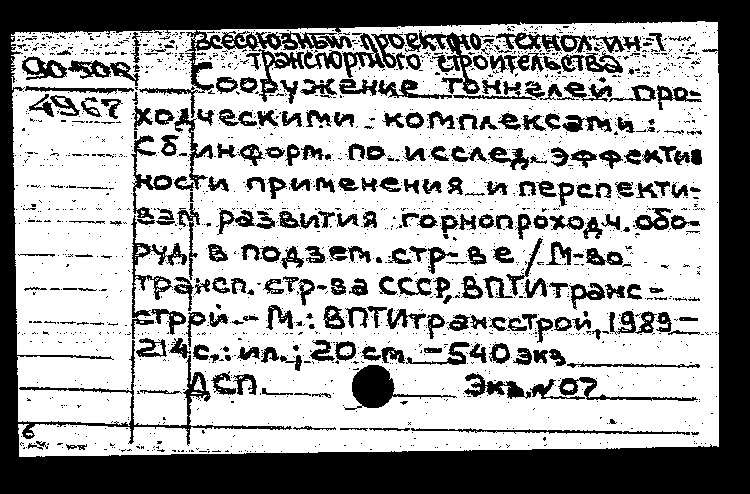 Всесоюзный проектно-технол. ин-т
транспортного строительства.
90-50R
Сооружение тоннелей про-
4967
ходческими комплексами:
Сб. информ. по исслед. эффектив
ности применения и перспекти-
вам развития горнопроходч. обо-
руд. в подзем. стр-ве / М-во
трансп. стр-ва СССР, ВПТИтранс-
строй. - М.: ВПТИтрансстрой, 1989 -
214 с.: ил.; 20 см. - 540 экз.
ДСП. Экз. № 07.
6